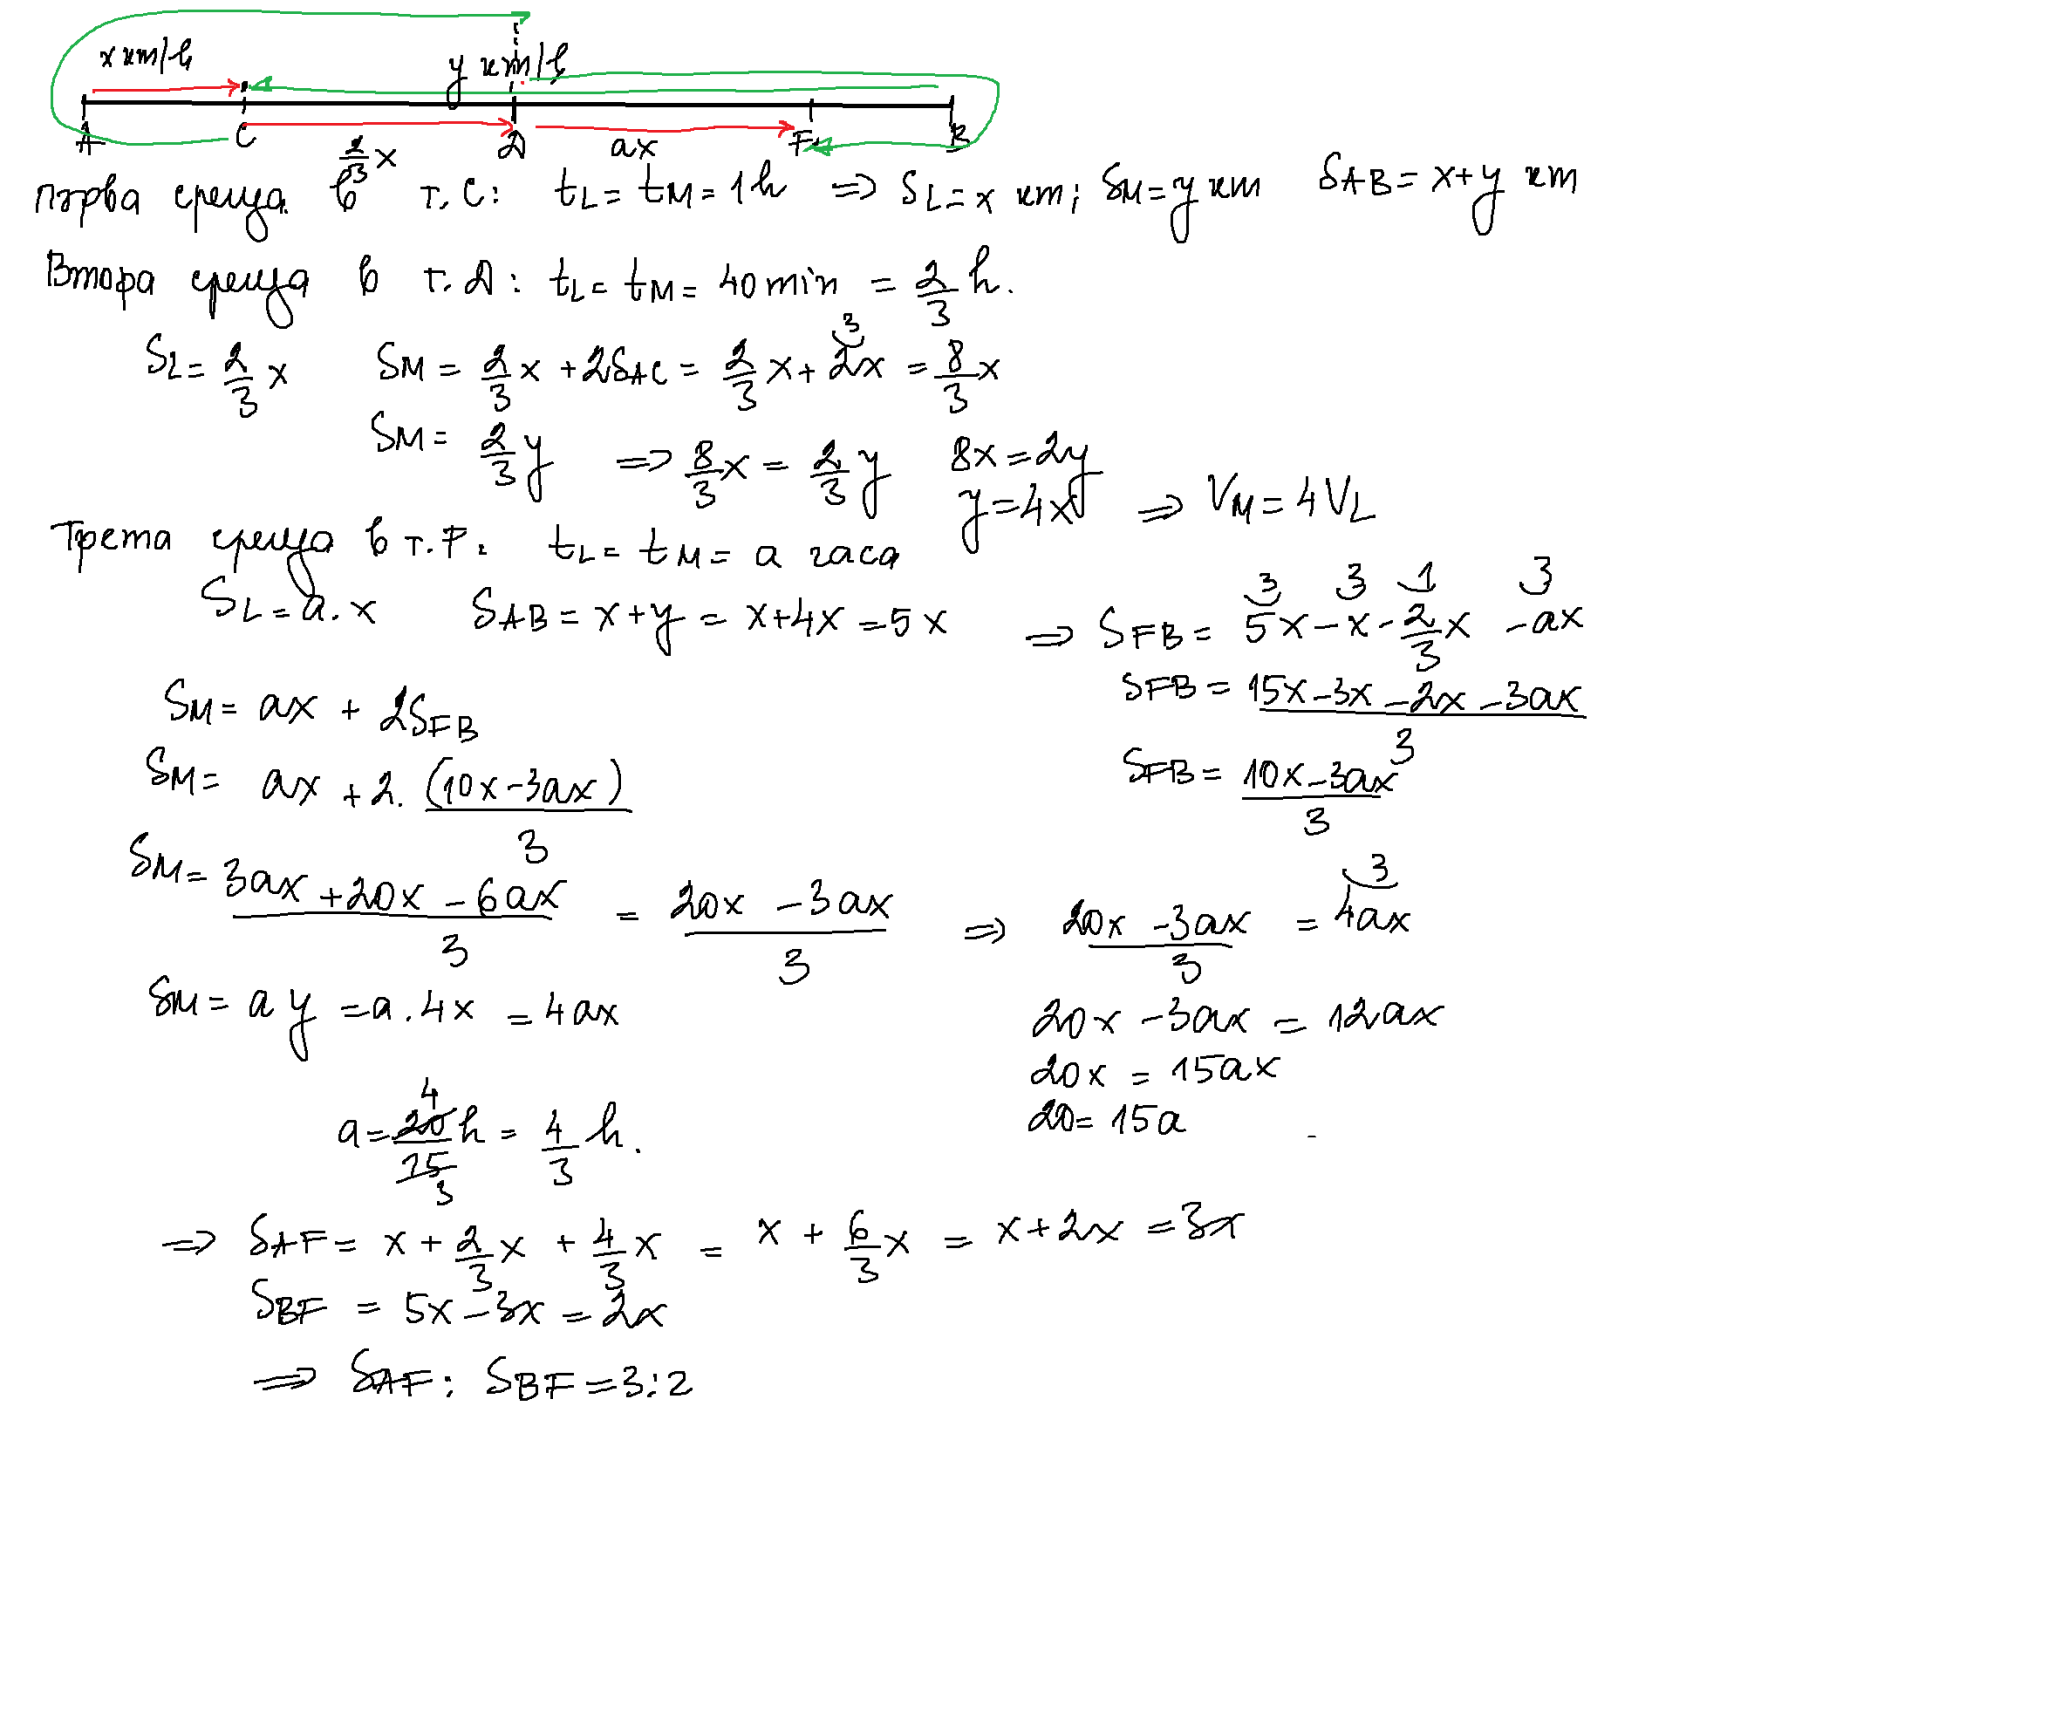 x km/h
y km/h
A C D F B
2/3 x
ax
първа среща в т. C: tL = tM = 1h => SL = x km; SM = y km SAB = x+y km
Втора среща в т. D: tL = tM = 40 min = 2/3 h.
SL = 2/3 x SM = 2/3 x + 2SAC = 2/3 x + 2x = 8/3 x
3
SM = 2/3 y => 8/3 x = 2/3 y 8x = 2y
y = 4x => VM = 4VL
Трета среща в т. F: tL = tM = a часа
SL = a.x SAB = x+y = x+4x = 5x => SFB = 5x - x - 2/3 x - ax
3 3 1 3
SFB = (15x - 3x - 2x - 3ax)/3
SM = ax + 2SFB
SFB = (10x - 3ax)/3
SM = ax + 2.(10x - 3ax)/3
SM = (3ax + 20x - 6ax)/3 = (20x - 3ax)/3 => (20x - 3ax)/3 = 4ax
3
SM = ay = a.4x = 4ax
20x - 3ax = 12ax
20x = 15ax
20 = 15a
a = 20/15 h = 4/3 h.
4
3
=> SAF = x + 2/3 x + 4/3 x = x + 6/3 x = x+2x = 3x
SBF = 5x - 3x = 2x
=> SAF : SBF = 3:2